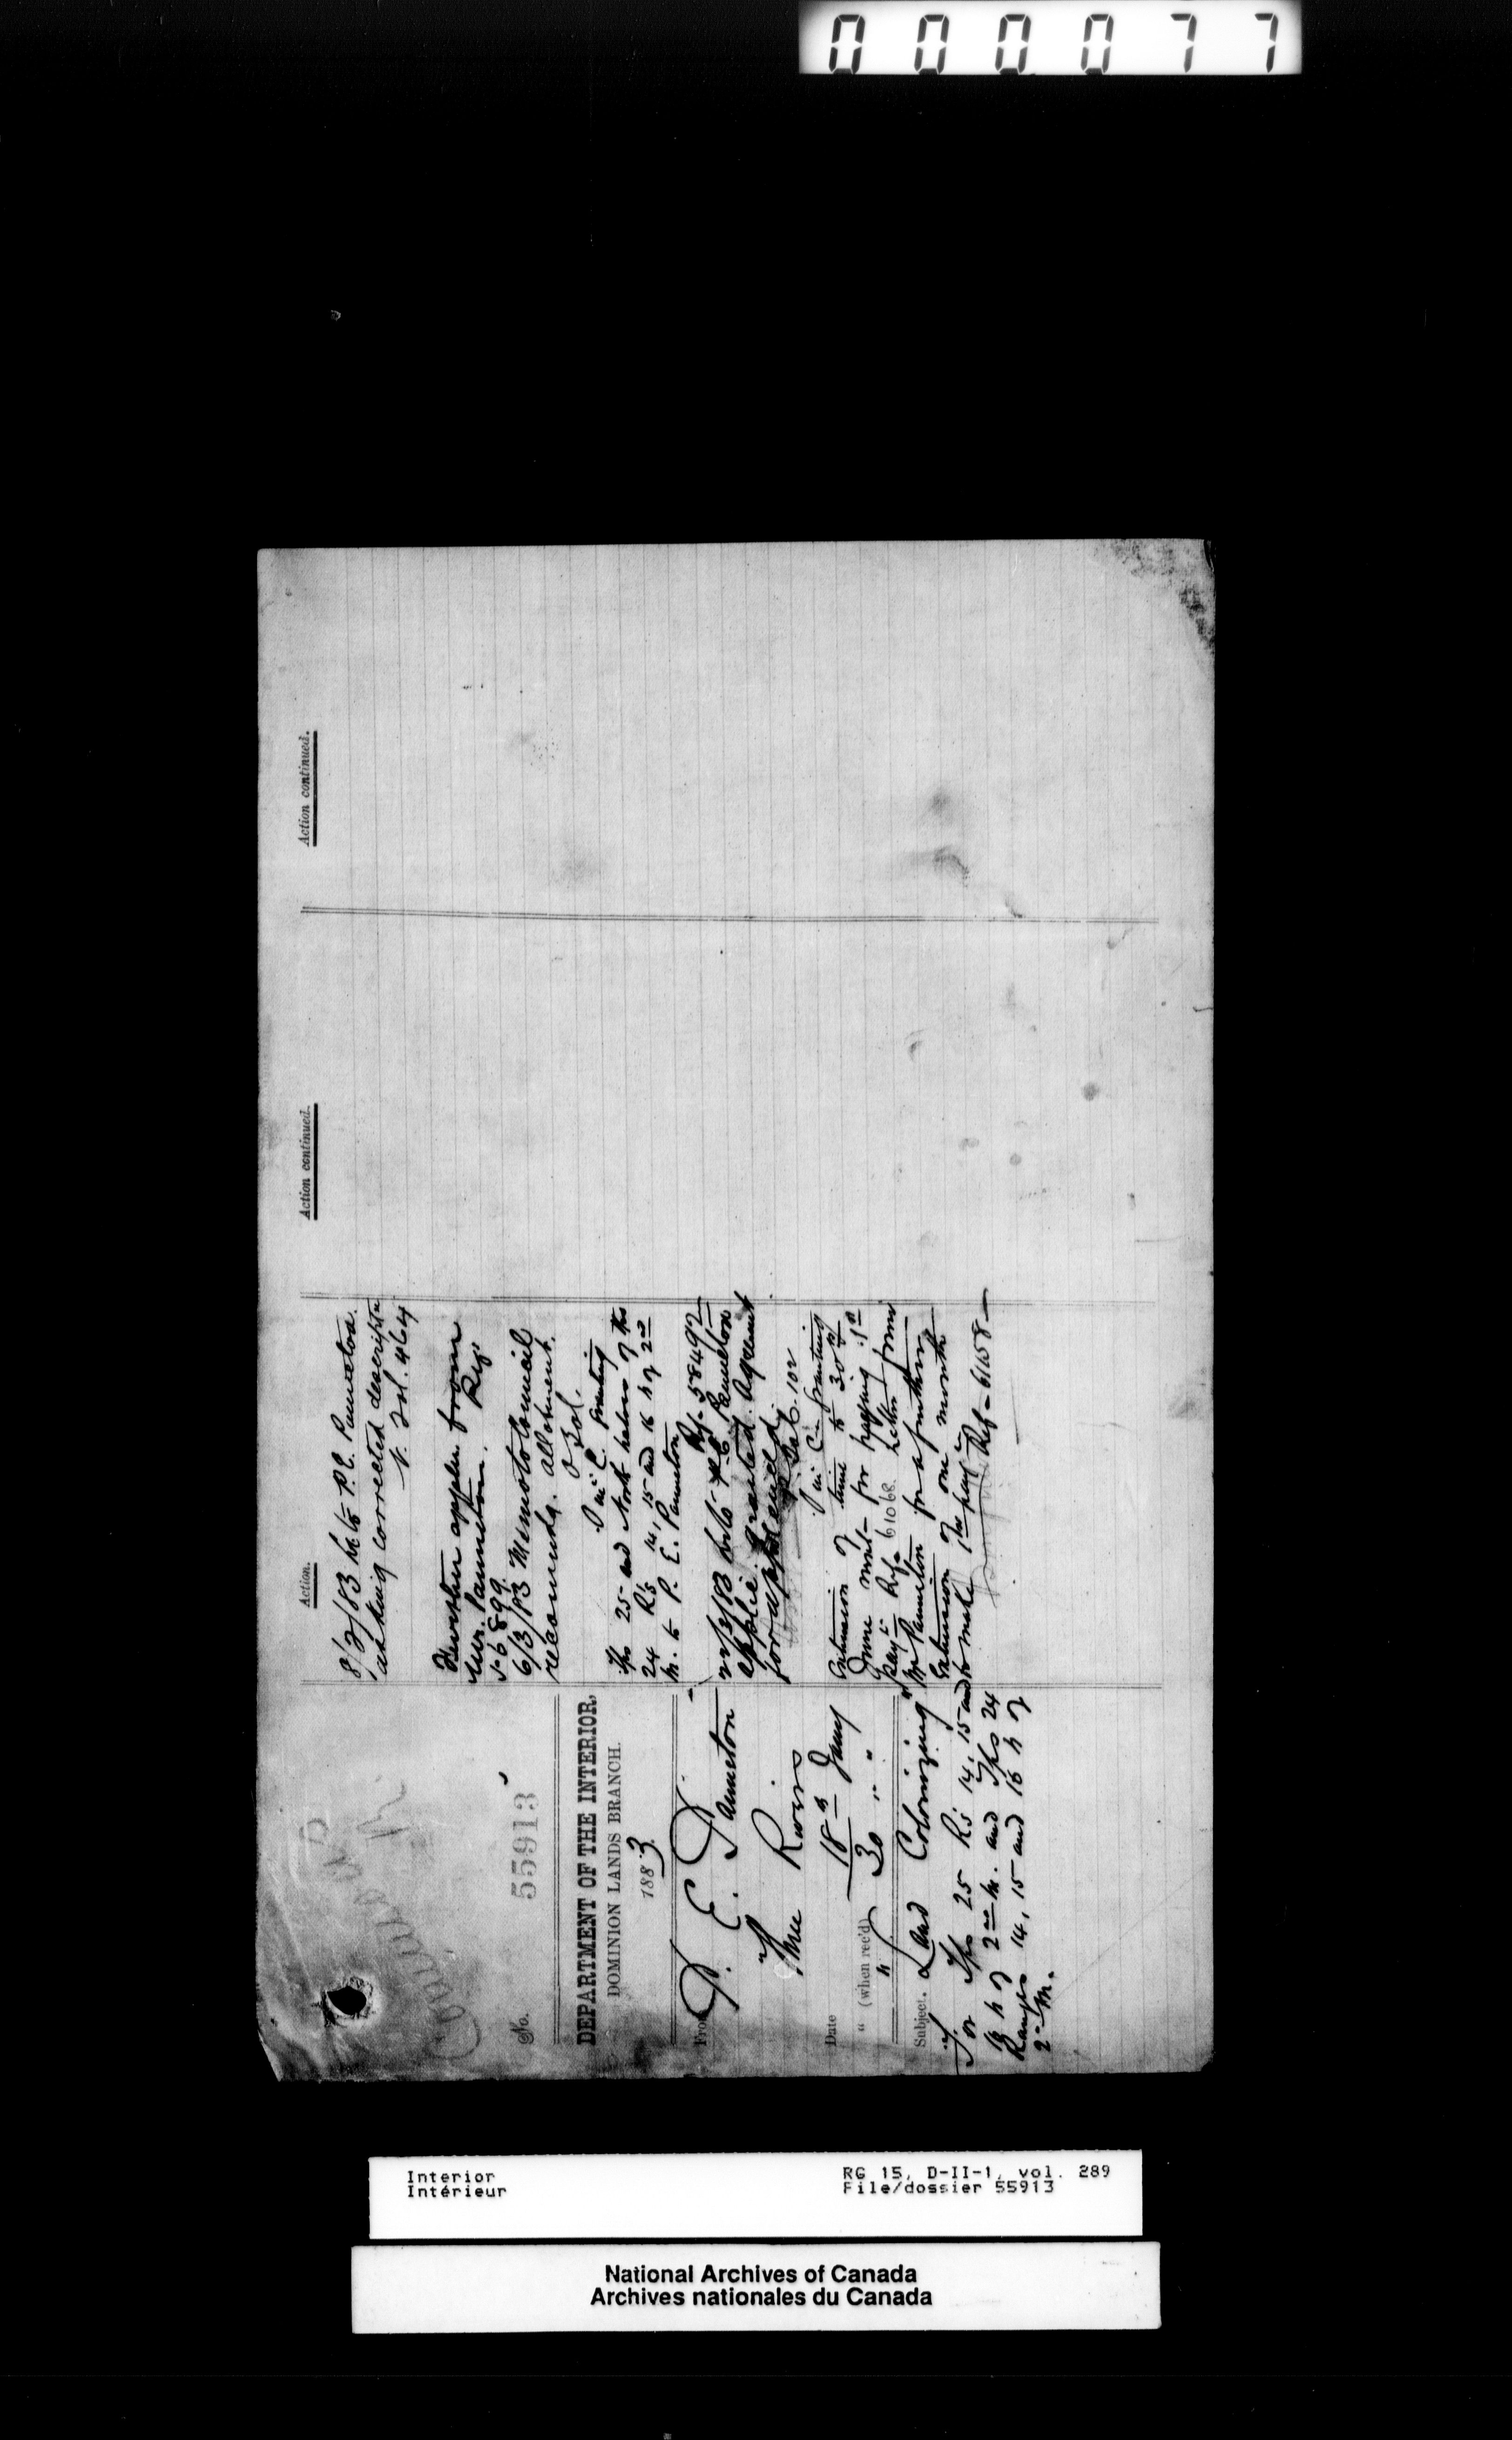 0 0 0 0 7 7
No. 55913
DEPARTMENT OF THE INTERIOR,
DOMINION LANDS BRANCH.
1883
From P. E. Panneton
Three Rivers
Date 18th Jany
" (when rec'd) 30 " "
Subject. Land Colonizing
For Tps 25 Rs 14, 15 and
16 W of 2nd M. and Tps 24
Ranges 14, 15 and 16 W of
2nd M.
Action.
8/2/83 let to P.E. Panneton.
asking corrected descriptn
Fol. 464
Further applen from
Mr. Panneton. Ref
56899.
6/3/83 Memo to Council
recommdg. allotment.
O in C. granting
Tps 25 and North halves of Tps
24 Rs 14, 15 and 16 W of 2nd
M. to P. E. Panneton
Ref. 58492
22/3/83 let to P.E. Panneton
applic. granted. Agreement
for
102
O in C granting
Extension of time to 30th
June next for paying 1st
Ref. 61068 Letter from
Mr Panneton for a further
Extension of one month
to make 1st payt Ref. 61158
Action continued.
Action continued.
Interior
Intérieur
RG 15, D-II-1, vol. 289
File/dossier 55913
National Archives of Canada
Archives nationales du Canada